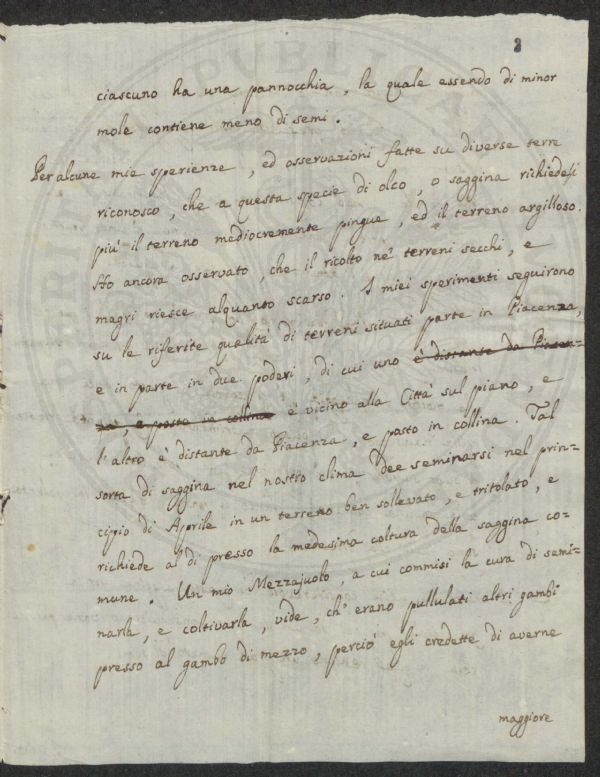 2
ciascuno ha una pannocchia, la quale essendo di minor
mole contiene meno di semi.
Per alcune mie sperienze, ed osservazioni fatte su diverse terre
riconosco, che a questa specie di olco, o saggina richiedesi
più il terreno mediocremente pingue, ed il terreno argilloso.
Ho ancora osservato, che il ricolto ne' terreni secchi, e
magri riesce alquanto scarso. I miei sperimenti seguirono
su le riferite qualità di terreni situati parte in Piacenza,
e in parte in due poderi, di cui uno è distante da Piacen=
za, è posto in collina è vicino alla Città sul piano, e
l'altro è distante da Piacenza, e posto in collina. Tal
sorta di saggina nel nostro clima dee seminarsi nel prin=
cipio di Aprile in un terreno ben sollevato, e tritolato, e
richiede al di presso la medesima coltura della saggina co=
mune. Un mio Mezzajuolo, a cui commisi la cura di semi=
narla, e coltivarla, vide, ch'erano pullulati altri gambi
presso al gambo di mezzo, perciò egli credette di averne
maggiore